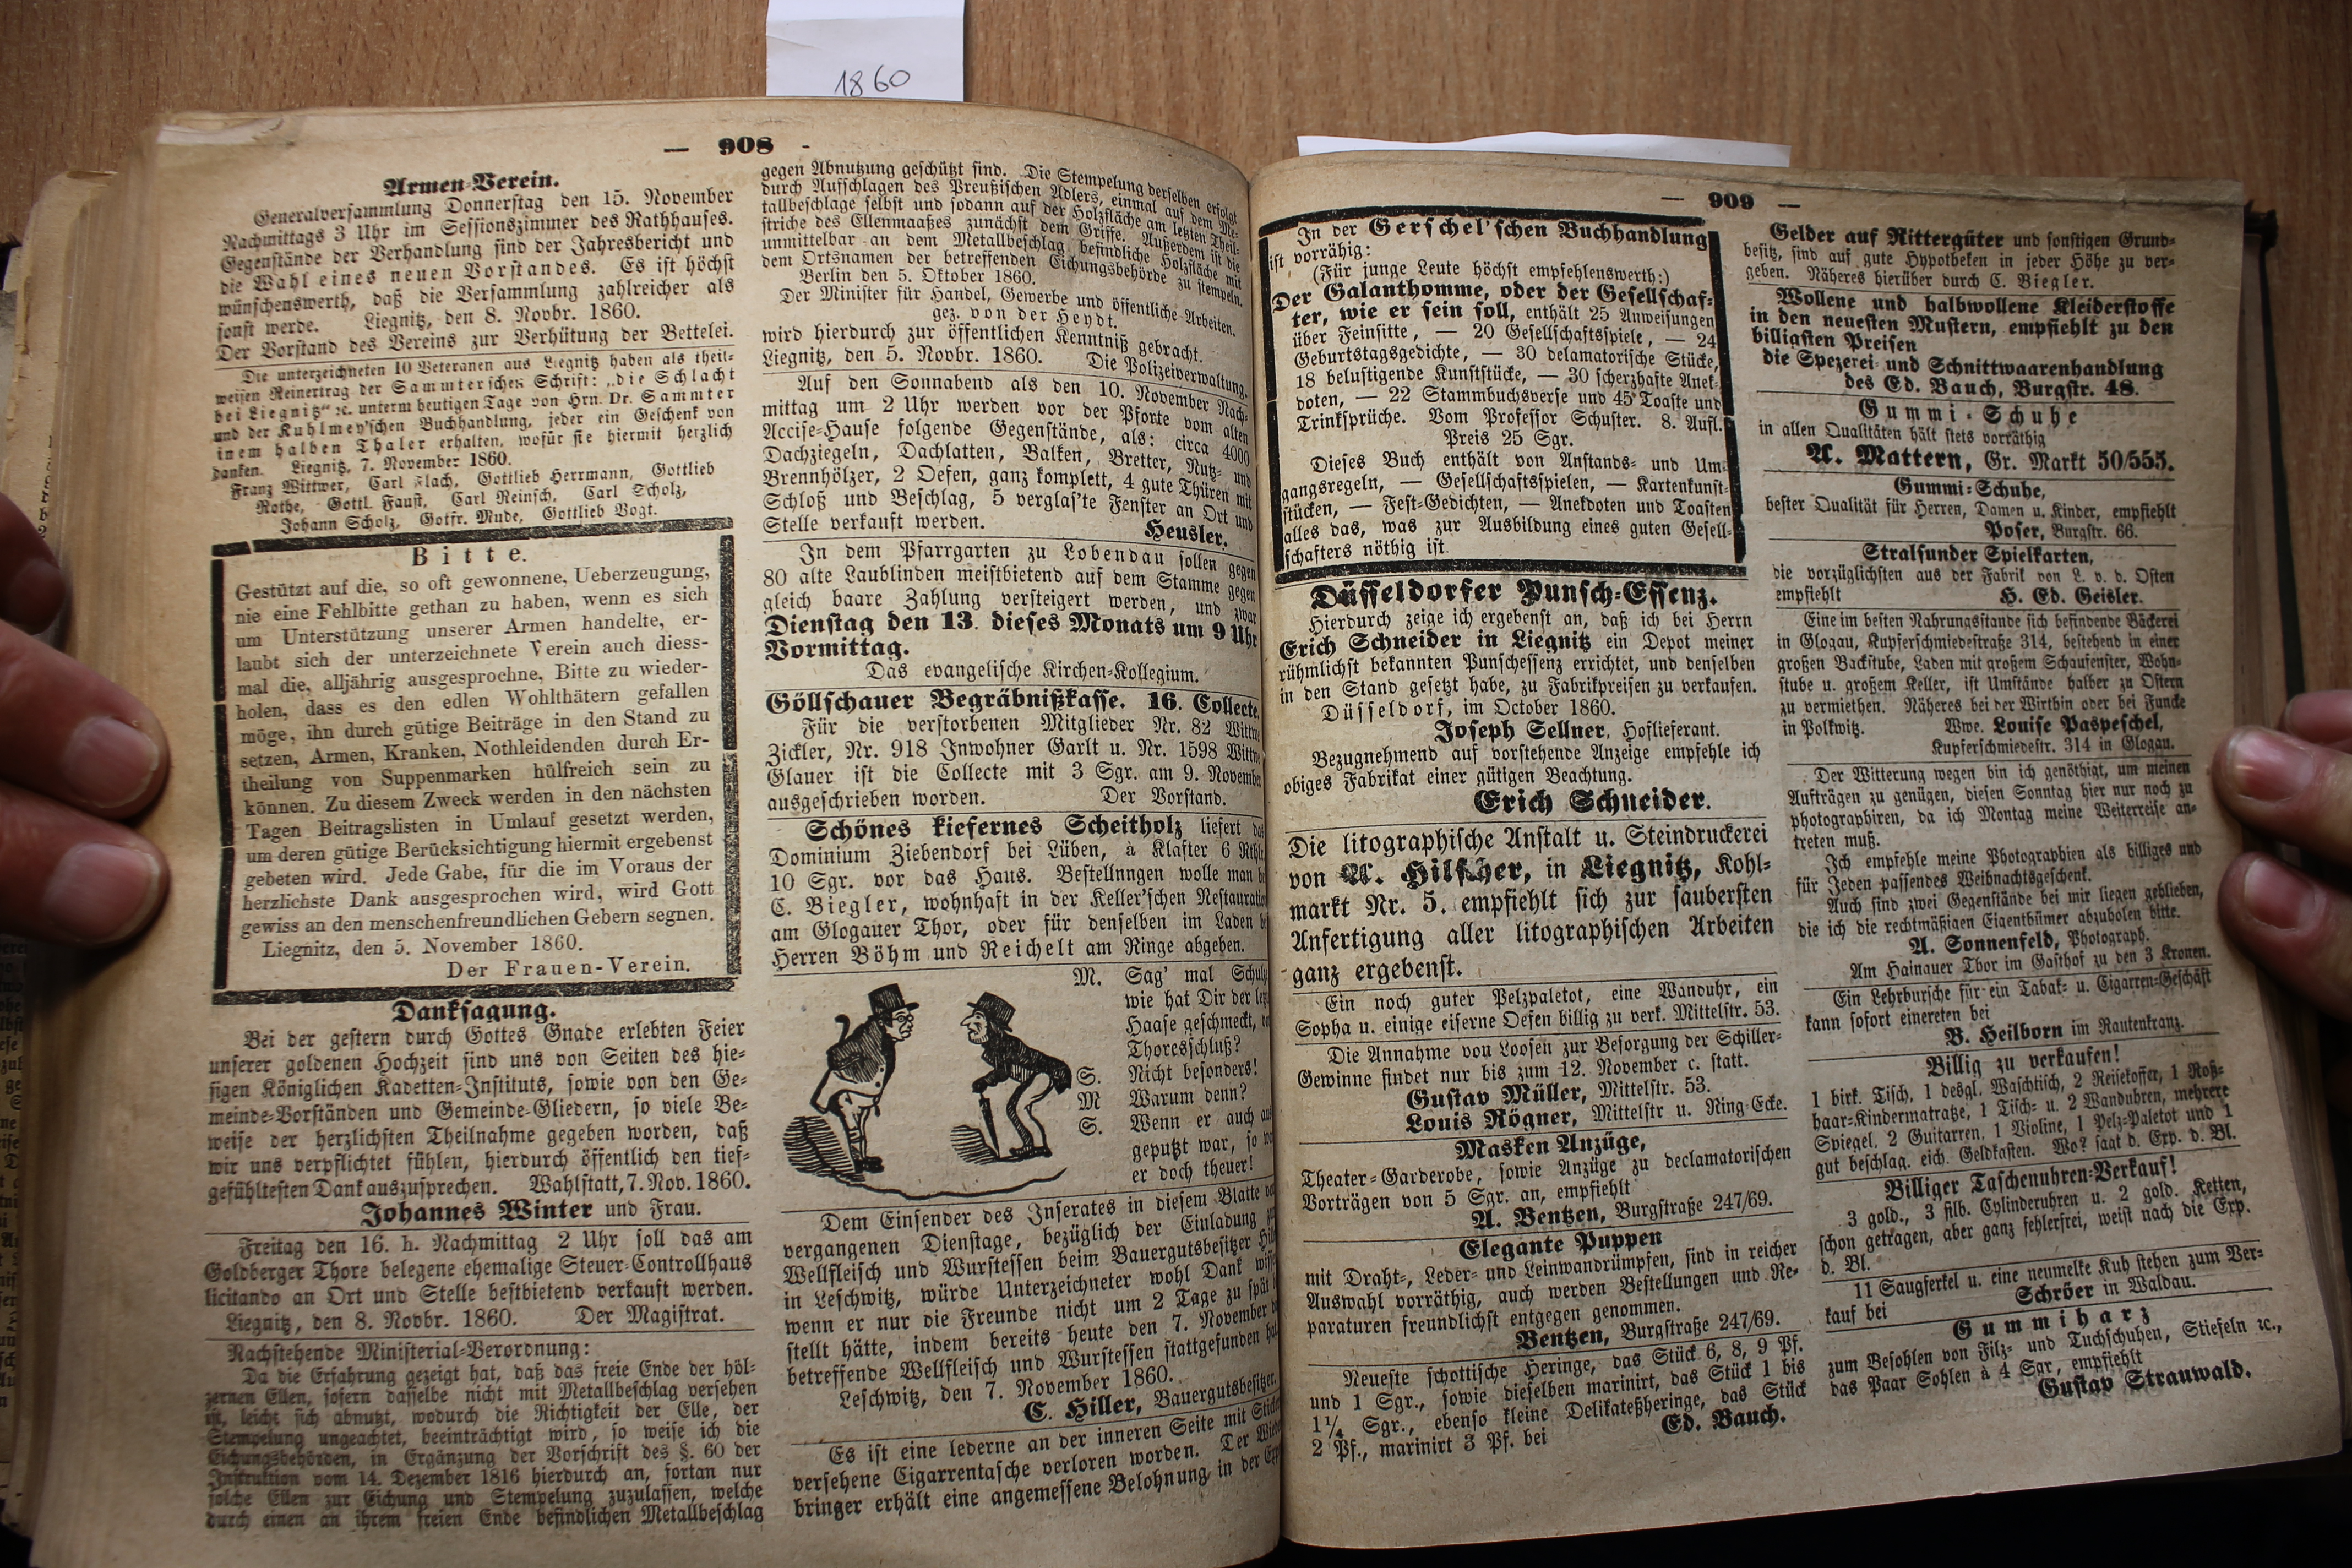 1860
— 908 -
Armen-Verein.
Generalversammlung Donnerstag den 15. November
Nachmittags 3 Uhr im Sessionszimmer des Rathhauses.
Gegenstände der Verhandlung sind der Jahresbericht und
die Wahl eines neuen Vorstandes. Es ist höchst
wünschenswerth, daß die Versammlung zahlreicher als
sonst werde. Liegnitz, den 8. Novbr. 1860.
Der Vorstand des Vereins zur Verhütung der Bettelei.
Die unterzeichneten 10 Veteranen aus Liegnitz haben als theil-
weisen Reinertrag der Sammterschen Schrift: „die Schlacht
bei Liegnitz“ ꝛc. unterm heutigen Tage von Hrn. Dr. Sammter
und der Kuhlmey'schen Buchhandlung, jeder ein Geschenk von
inem halben Thaler erhalten, wofür sie hiermit herzlich
danken. Liegnitz, 7. November 1860.
Franz Wittwer, Carl Flach, Gottlieb Herrmann, Gottlieb
Rothe, Gottl. Faust, Carl Reinsch, Carl Scholz,
Johann Scholz, Gotfr. Mude, Gottlieb Vogt.
Bitte.
Gestützt auf die, so oft gewonnene, Ueberzeugung,
nie eine Fehlbitte gethan zu haben, wenn es sich
um Unterstützung unserer Armen handelte, er-
laubt sich der unterzeichnete Verein auch diess-
mal die, alljährig ausgesprochne, Bitte zu wieder-
holen, dass es den edlen Wohlthätern gefallen
möge, ihn durch gütige Beiträge in den Stand zu
setzen, Armen, Kranken, Nothleidenden durch Er-
theilung von Suppenmarken hülfreich sein zu
können. Zu diesem Zweck werden in den nächsten
Tagen Beitragslisten in Umlauf gesetzt werden,
um deren gütige Berücksichtigung hiermit ergebenst
gebeten wird. Jede Gabe, für die im Voraus der
herzlichste Dank ausgesprochen wird, wird Gott
gewiss an den menschenfreundlichen Gebern segnen.
Liegnitz, den 5. November 1860.
Der Frauen-Verein.
Danksagung.
Bei der gestern durch Gottes Gnade erlebten Feier
unserer goldenen Hochzeit sind uns von Seiten des hie-
sigen Königlichen Kadetten-Instituts, sowie von den Ge-
meinde-Vorständen und Gemeinde-Gliedern, so viele Be-
weise der herzlichsten Theilnahme gegeben worden, daß
wir uns verpflichtet fühlen, hierdurch öffentlich den tief-
gefühltesten Dank auszusprechen. Wahlstatt, 7. Nov. 1860.
Johannes Winter und Frau.
Freitag den 16. h. Nachmittag 2 Uhr soll das am
Goldberger Thore belegene ehemalige Steuer-Controllhaus
licitando an Ort und Stelle bestbietend verkauft werden.
Liegnitz, den 8. Novbr. 1860. Der Magistrat.
Nachstehende Ministerial-Verordnung:
Da die Erfahrung gezeigt hat, daß das freie Ende der höl-
zernen Ellen, sofern dasselbe nicht mit Metallbeschlag versehen
ist, leicht sich abnutzt, wodurch die Richtigkeit der Elle, der
Stempelung ungeachtet, beeinträchtigt wird, so weise ich die
Eichungsbehörden, in Ergänzung der Vorschrift des §. 60 der
Instruktion vom 14. Dezember 1816 hierdurch an, fortan nur
solche Ellen zur Eichung und Stempelung zuzulassen, welche
durch einen an ihrem freien Ende befindlichen Metallbeschlag
gegen Abnutzung geschützt sind. Die Stempelung derselben erfolgt
durch Aufschlagen des Preußischen Adlers, einmal auf dem Me-
tallbeschlage selbst und sodann auf der Holzfläche am letzten Theil-
striche des Ellenmaaßes zunächst dem Griffe. Außerdem ist die
unmittelbar an dem Metallbeschlag befindliche Holzfläche mit
dem Ortsnamen der betreffenden Eichungsbehörde zu stempeln.
Berlin den 5. Oktober 1860.
Der Minister für Handel, Gewerbe und öffentliche Arbeiten.
gez. von der Heydt.
wird hierdurch zur öffentlichen Kenntniß gebracht.
Liegnitz, den 5. Novbr. 1860. Die Polizeiverwaltung.
Auf den Sonnabend als den 10. November Nach-
mittag um 2 Uhr werden vor der Pforte vom alten
Accise-Hause folgende Gegenstände, als: circa 4000
Dachziegeln, Dachlatten, Balken, Bretter, Nutz- und
Brennhölzer, 2 Oefen, ganz komplett, 4 gute Thüren mit
Schloß und Beschlag, 5 verglas'te Fenster an Ort und
Stelle verkauft werden. Heusler.
In dem Pfarrgarten zu Lobendau sollen gegen
80 alte Laublinden meistbietend auf dem Stamme gegen
gleich baare Zahlung versteigert werden, und zwar
Dienstag den 13. dieses Monats um 9 Uhr
Vormittag.
Das evangelische Kirchen-Kollegium.
Göllschauer Begräbnißkasse. 16. Collecte.
Für die verstorbenen Mitglieder Nr. 82 Wittwe
Zickler, Nr. 918 Inwohner Garlt u. Nr. 1598 Wittwe
Glauer ist die Collecte mit 3 Sgr. am 9. November
ausgeschrieben worden. Der Vorstand.
Schönes kiefernes Scheitholz liefert das
Dominium Ziebendorf bei Lüben, à Klafter 6 Rthlr.
10 Sgr. vor das Haus. Bestellnngen wolle man
C. Biegler, wohnhaft in der Keller'schen Restauration
am Glogauer Thor, oder für denselben im Laden
Herren Böhm und Reichelt am Ringe abgeben.
M. Sag' mal
wie hat Dir der
Haase geschmeckt,
Thoresschluß?
S. Nicht besonders!
M Warum denn?
S. Wenn er auch
geputzt war, so
er doch theuer!
Dem Einsender des Inserates in diesem Blatte
vergangenen Dienstage, bezüglich der Einladung
Wellfleisch und Wurstessen beim Bauergutsbesitzer
in Leschwitz, würde Unterzeichneter wohl Dank
wenn er nur die Freunde nicht um 2 Tage zu spät
stellt hätte, indem bereits heute den 7. November
betreffende Wellfleisch und Wurstessen stattgefunden
Leschwitz, den 7. November 1860.
C. Hiller, Bauergutsbesitzer.
Es ist eine lederne an der inneren Seite mit
versehene Cigarrentasche verloren worden. Der
bringer erhält eine angemessene Belohnung in der
— 909 —
In der Gerschel'schen Buchhandlung
ist vorräthig:
(Für junge Leute höchst empfehlenswerth:)
Der Galanthomme, oder der Gesellschaf-
ter, wie er sein soll, enthält 25 Anweisungen
über Feinsitte, — 20 Gesellschaftsspiele, — 24
Geburtstagsgedichte, — 30 delamatorische Stücke,
18 belustigende Kunststücke, — 30 scherzhafte Anek-
doten, — 22 Stammbuchsverse und 45 Toaste und
Trinksprüche. Vom Professor Schuster. 8. Aufl.
Preis 25 Sgr.
Dieses Buch enthält von Anstands- und Um-
gangsregeln, — Gesellschaftsspielen, — Kartenkunst-
stücken, — Fest-Gedichten, — Anekdoten und Toasten
alles das, was zur Ausbildung eines guten Gesell-
schafters nöthig ist
Düsseldorfer Punsch-Essenz.
Hierdurch zeige ich ergebenst an, daß ich bei Herrn
Erich Schneider in Liegnitz ein Depot meiner
rühmlichst bekannten Punschessenz errichtet, und denselben
in den Stand gesetzt habe, zu Fabrikpreisen zu verkaufen.
Düsseldorf, im October 1860.
Joseph Sellner, Hoflieferant.
Bezugnehmend auf vorstehende Anzeige empfehle ich
obiges Fabrikat einer gütigen Beachtung.
Erich Schneider.
Die litographische Anstalt u. Steindruckerei
von A. Hilscher, in Liegnitz, Kohl-
markt Nr. 5. empfiehlt sich zur saubersten
Anfertigung aller litographischen Arbeiten
ganz ergebenst.
Ein noch guter Pelzpaletot, eine Wanduhr, ein
Sopha u. einige eiserne Oefen billig zu verk. Mittelstr. 53.
Die Annahme von Loosen zur Besorgung der Schiller-
Gewinne findet nur bis zum 12. November c. statt.
Gustav Müller, Mittelstr. 53.
Louis Rögner, Mittelstr u. Ring-Ecke.
Masken Anzüge,
Theater-Garderobe, sowie Anzüge zu declamatorischen
Vorträgen von 5 Sgr. an, empfiehlt
A. Bentzen, Burgstraße 247/69.
Elegante Puppen
mit Draht-, Leder- und Leinwandrümpfen, sind in reicher
Auswahl vorräthig, auch werden Bestellungen und Re-
paraturen freundlichst entgegen genommen.
Bentzen, Burgstraße 247/69.
Neueste schottische Heringe, das Stück 6, 8, 9 Pf.
und 1 Sgr., sowie dieselben marinirt, das Stück 1 bis
1¼ Sgr., ebenso kleine Delikateßheringe, das Stück
2 Pf., marinirt 3 Pf. bei Ed. Bauch.
Gelder auf Rittergüter und sonstigen Grund-
besitz, sind auf gute Hypotheken in jeder Höhe zu ver-
geben. Näheres hierüber durch C. Biegler.
Wollene und halbwollene Kleiderstoffe
in den neuesten Mustern, empfiehlt zu den
billigsten Preisen
die Spezerei- und Schnittwaarenhandlung
des Ed. Bauch, Burgstr. 48.
Gummi-Schuhe
in allen Qualitäten hält stets vorräthig
A. Mattern, Gr. Markt 50/555.
Gummi-Schuhe,
bester Qualität für Herren, Damen u. Kinder, empfiehlt
Poser, Burgstr. 66.
Stralsunder Spielkarten,
die vorzüglichsten aus der Fabrik von L. v. d. Osten
empfiehlt H. Ed. Geisler.
Eine im besten Nahrungsstande sich befindende Bäckerei
in Glogau, Kupferschmiedestraße 314, bestehend in einer
großen Backstube, Laden mit großem Schaufenster, Wohn-
stube u. großem Keller, ist Umstände halber zu Ostern
zu vermiethen. Näheres bei der Wirthin oder bei Funcke
in Polkwitz. Wwe. Louise Paspeschel,
Kupferschmiedestr. 314 in Glogau.
Der Witterung wegen bin ich genöthigt, um meinen
Aufträgen zu genügen, diesen Sonntag hier nur noch zu
photographiren, da ich Montag meine Weiterreise an-
treten muß.
Ich empfehle meine Photographien als billiges und
für Jeden passendes Weihnachtsgeschenk.
Auch sind zwei Gegenstände bei mir liegen geblieben,
die ich die rechtmäßigen Eigenthümer abzuholen bitte.
A. Sonnenfeld, Photograph.
Am Hainauer Thor im Gasthof zu den 3 Kronen.
Ein Lehrbursche für ein Tabak- u. Cigarren-Geschäft
kann sofort einereten bei
B. Heilborn im Rautenkranz.
Billig zu verkaufen!
1 birk. Tisch, 1 desgl. Waschtisch, 2 Reisekoffer, 1 Roß-
haar-Kindermatratze, 1 Tisch- u. 2 Wanduhren, mehrere
Spiegel, 2 Guitarren, 1 Violine, 1 Pelz-Paletot und 1
gut beschlag. eich. Geldkasten. Wo? sagt d. Exp. d. Bl.
Billiger Taschenuhren-Verkauf!
3 gold., 3 silb. Cylinderuhren u. 2 gold. Ketten,
schon getragen, aber ganz fehlerfrei, weist nach die Exp.
d. Bl.
11 Saugferkel u. eine neumelke Kuh stehen zum Ver-
kauf bei Schröer in Waldau.
Gummiharz
zum Besohlen von Filz- und Tuchschuhen, Stiefeln ꝛc.,
das Paar Sohlen à 4 Sgr, empfiehlt
Gustav Strauwald.